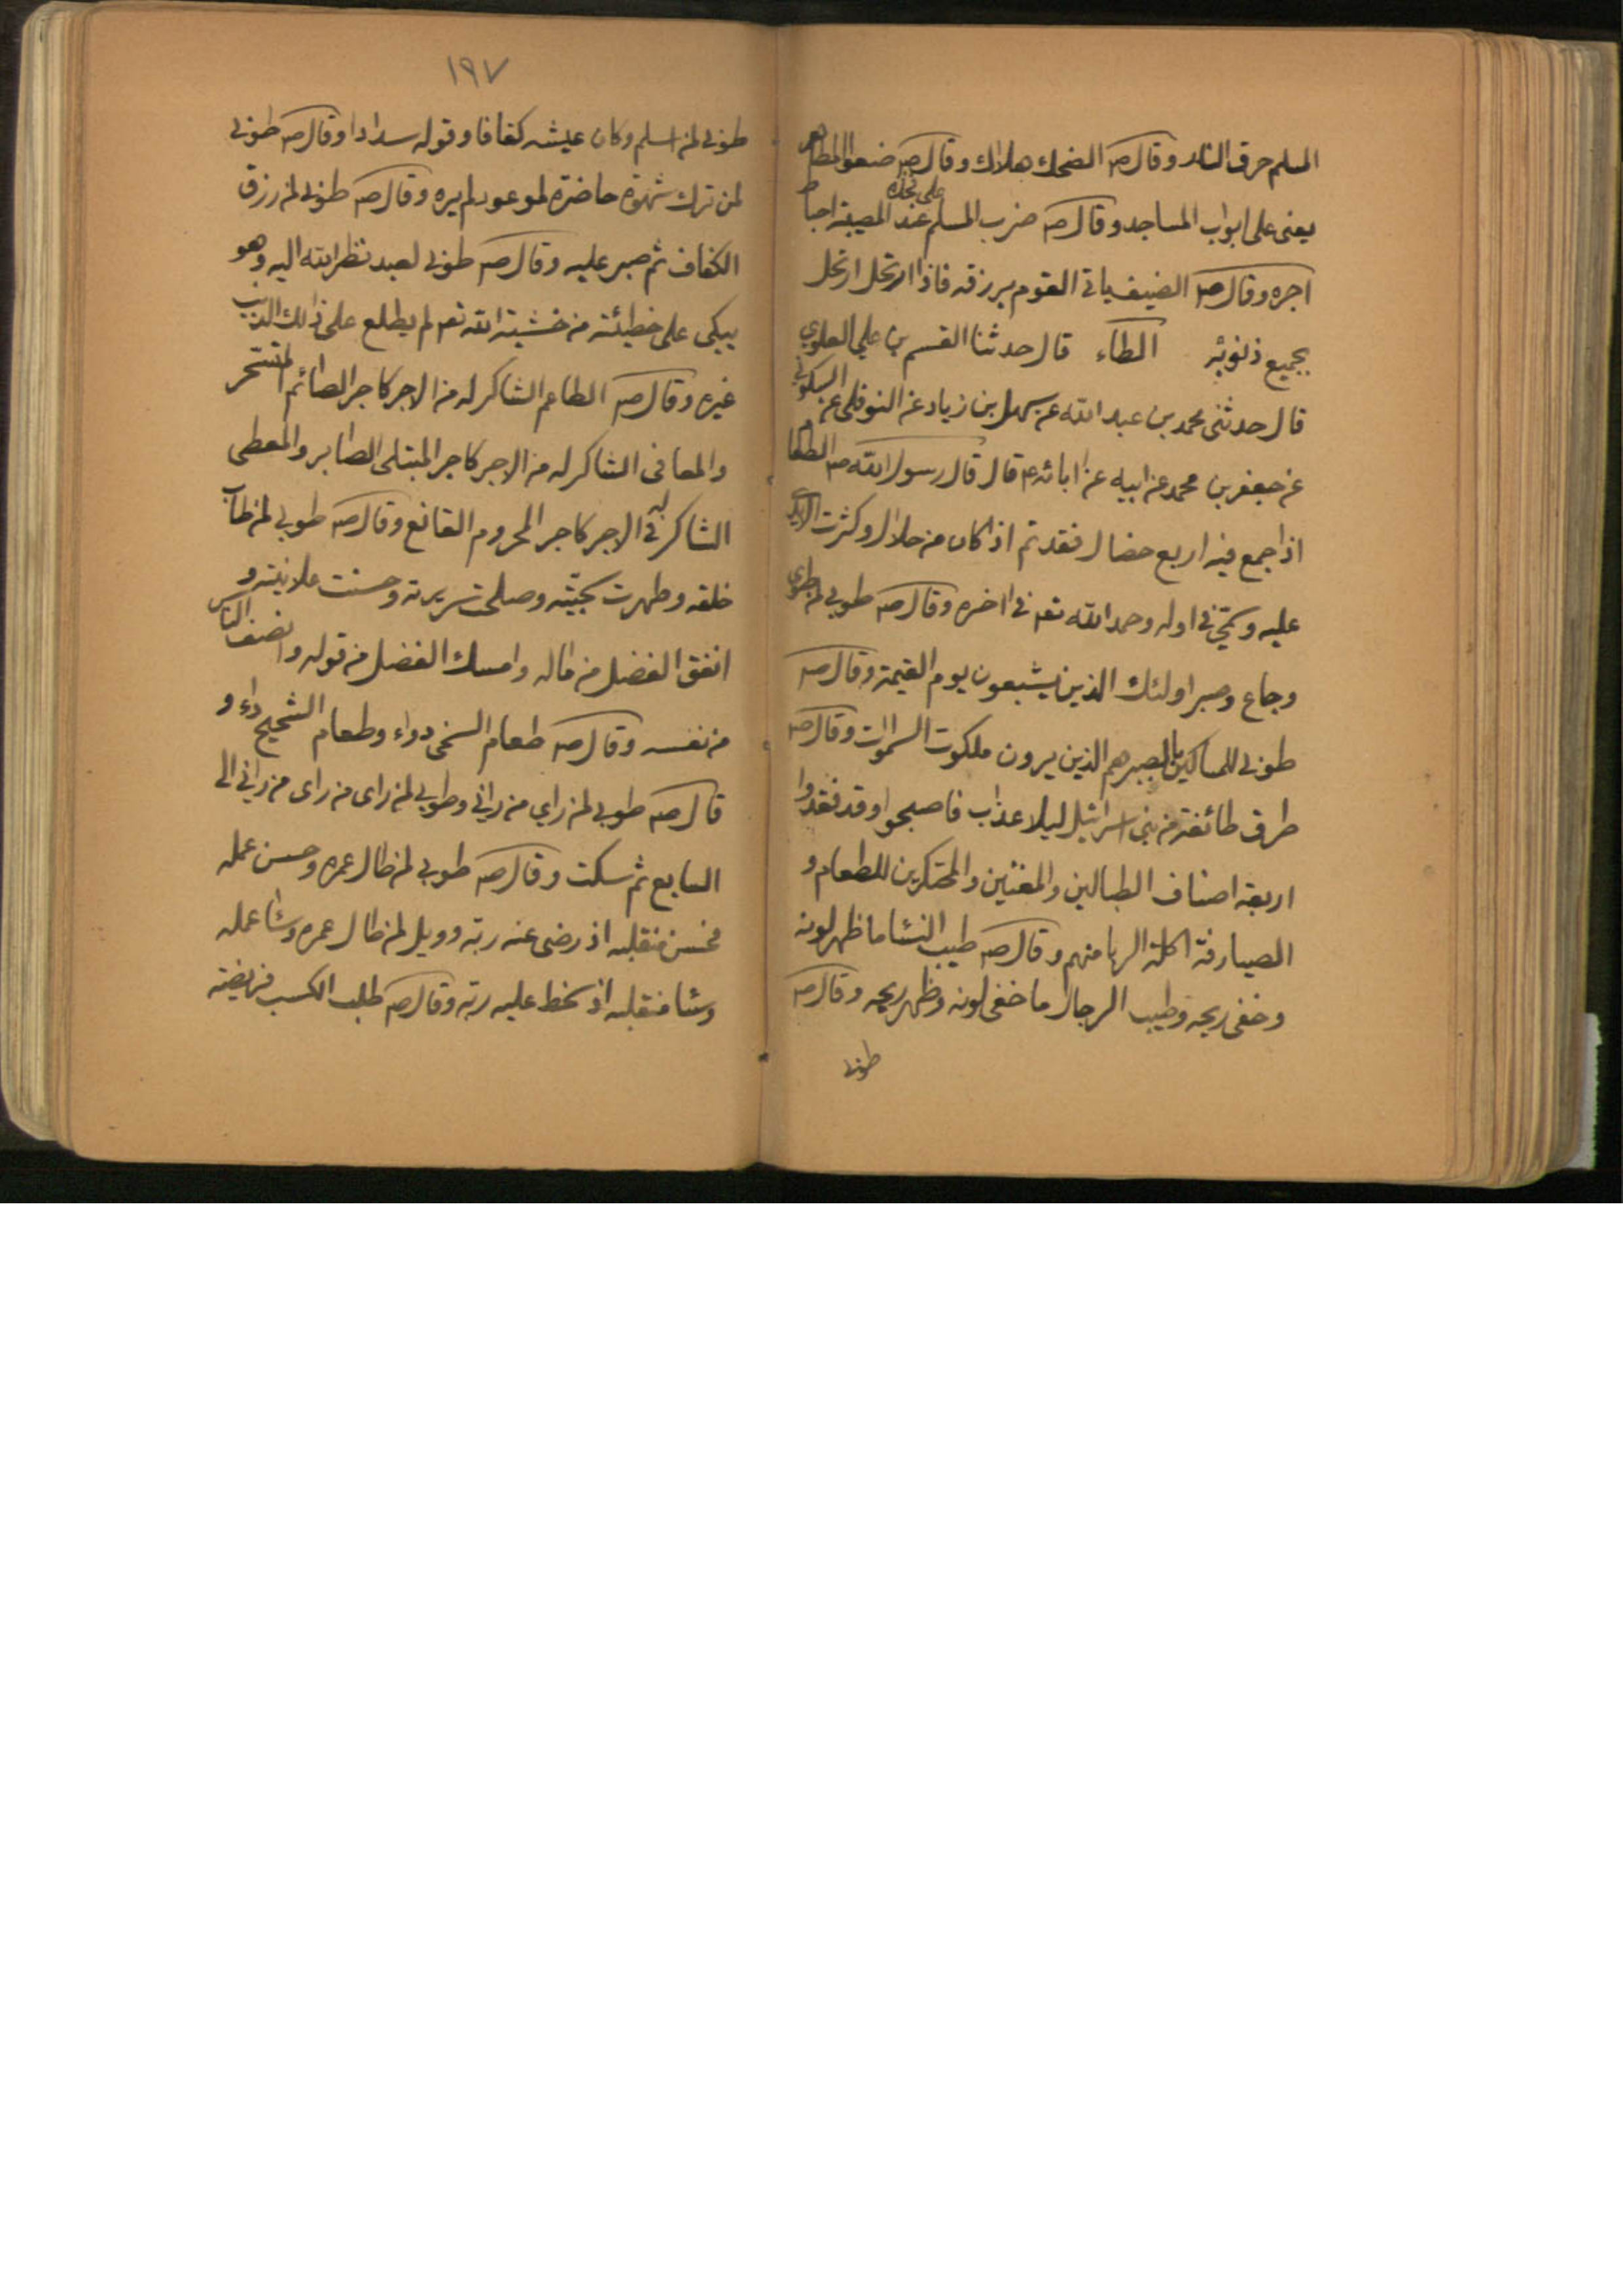 المسلم حرق النار وقال ص الضحك هلاك وقال ص ضعوا المطاهر
يعنى على ابواب المساجد وقال ص ضرب المسلم على فخذه عند المصيبة احباط
اجره وقال ص الضيف ياتى القوم برزقه فاذا ارتحل ارتحل
بجميع ذنوبه الطاء قال حدثنا القسم بن علي العلوي
قال حدثنى محمد بن عبد الله عن سهل بن زياد عن النوفلى عن السكونى
عن جعفر بن محمد عن ابيه عن ابائه ع قال قال رسول الله ص الطعام
اذا جمع فيه اربع خصال فقد تم اذا كان من حلال وكثرت الايدى
عليه وسمي فى اوله وحمد الله تعه فى اخره وقال ص طوبى لمن طوى
وجاع وصبر اولئك الذين يشبعون يوم القيمة وقال ص
طوبى للمساكين بالصبر هم الذين يرون ملكوت السموات وقال ص
طرق طائفة من بنى اسرائيل ليلا عذاب فاصبحوا وقد فقدوا
اربعة اصناف الطبالين والمغنين والمحتكرين للطعام و
الصيارفة اكلة الربا منهم وقال ص طيب النسا ما ظهر لونه
وخفى ريحه وطيب الرجال ما خفى لونه وظهر ريحه وقال ص
طوبى
١٩٧
طوبى لمن اسلم وكان عيشه كفافا وقوله سدادا وقال ص طوبى
لمن ترك شهوة حاضرة لموعود لم يره وقال ص طوبى لمن رزق
الكفاف ثم صبر عليه وقال ص طوبى لعبد نظر الله اليه وهو
يبكى على خطيئته من خشية الله تعه لم يطلع على ذلك الذنب
غيره وقال ص الطاعم الشاكر له من الاجر كاجر الصائم
والمعافى الشاكر له من الاجر كاجر المبتلى الصابر والمعطى
الشاكر له فى الاجر كاجر المحروم القانع وقال ص طوبى لمن طاب
خلقه وطهرت سجيته وصلحت سريرته وحسنت علانيته و
انفق الفضل من ماله وامسك الفضل من قوله وانصف الناس
من نفسه وقال ص طعام السخى دواء وطعام الشحيح داء و
قال ص طوبى لمن راي من رانى وطوبى لمن راى من راى من رانى الى
السابع ثم سكت وقال ص طوبى لمن طال عمره وحسن عمله
فحسن منقلبه اذ رضى عنه ربه وويل لمن طال عمره وسا عمله
وسا منقلبه اذ سخط عليه ربه وقال ص طلب الكسب فريضة